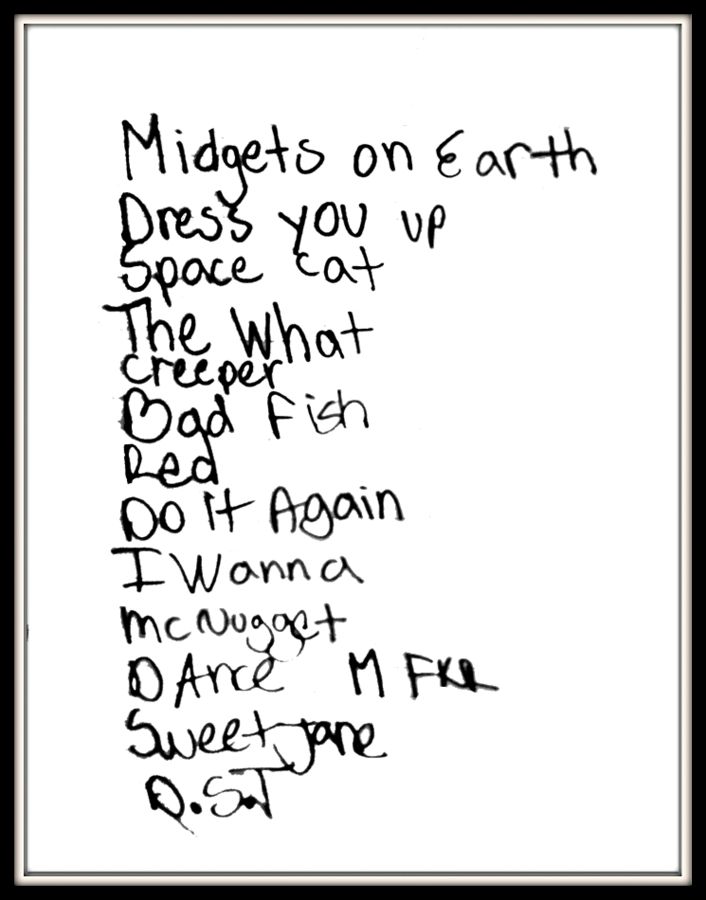 Midgets on Earth
Dress you up
Space cat
The What
creeper
Bad Fish
Red
Do It Again
I Wanna
mcNugget
DAnce M FKR
Sweet Jane
Q.S.T